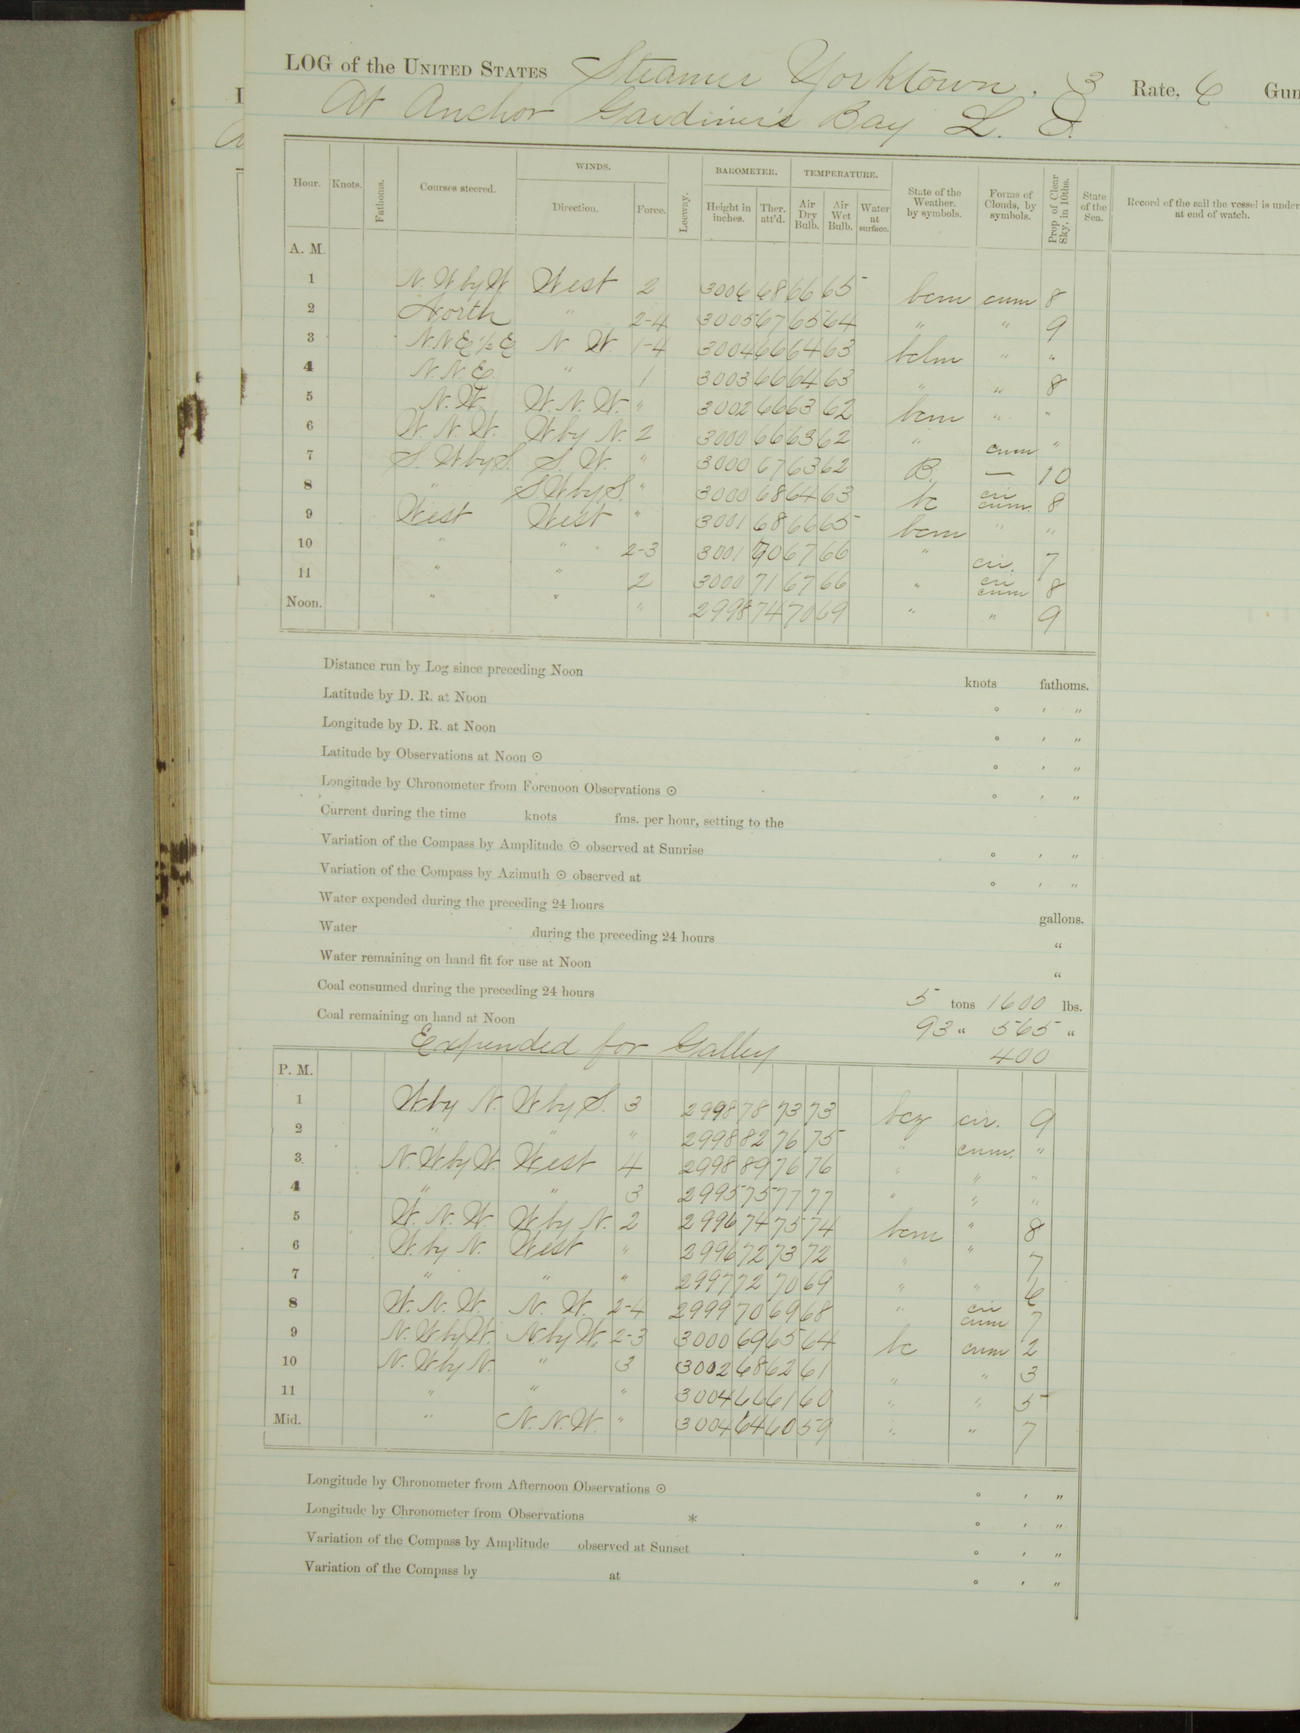 LOG of the UNITED STATES Steamer Yorktown. 3 Rate, 6 Gun
At Anchor Gardiner's Bay L. I.
Hour. Knots. Fathoms. Courses steered. WINDS. Direction. Force. Leeway. BAROMETER. Height in inches. Ther. att'd. TEMPERATURE. Air Dry Bulb. Air Wet Bulb. Water at surface. State of the Weather. by symbols. Forms of Clouds, by symbols. Prop. of Clear Sky, in 10ths. State of the Sea. Record of the sail the vessel is under at end of watch.
A. M.
1 N. W by W West 2 3006 68 66 65 bcm cum 8
2 North " 2-4 3005 67 65 64 " " 9
3 N N E ½ E N W 1-4 3004 66 64 63 bclm " "
4 N N E " 1 3003 66 64 63 " " 8
5 N. W. W. N. W. " 3002 66 63 62 bcm " "
6 W. N. W. W by N. 2 3000 66 63 62 " cum "
7 S. W by S. S. W. " 3000 67 63 62 B. — 10
8 " S W by S. " 3000 68 64 63 bc cir cum. 8
9 West West " 3001 68 66 65 bcm " "
10 " " 2-3 3001 70 67 66 " cir. 7
11 " " 2 3000 71 67 66 " cir cum 8
Noon. " " " 2998 74 70 69 " " 9
Distance run by Log since preceding Noon knots fathoms.
Latitude by D. R. at Noon ° ' "
Longitude by D. R. at Noon ° ' "
Latitude by Observations at Noon ☉ ° ' "
Longitude by Chronometer from Forenoon Observations ☉ ° ' "
Current during the time knots fms. per hour, setting to the
Variation of the Compass by Amplitude ☉ observed at Sunrise ° ' "
Variation of the Compass by Azimuth ☉ observed at ° ' "
Water expended during the preceding 24 hours gallons.
Water during the preceding 24 hours "
Water remaining on hand fit for use at Noon "
Coal consumed during the preceding 24 hours 5 tons 1600 lbs.
Coal remaining on hand at Noon 93 " 565 "
Expended for Galley 400
P. M.
1 W by N. W by S. 3 2998 78 73 73 bcz cir. 9
2 " " " 2998 82 76 75 " cum. "
3 N. W by W. West 4 2998 89 76 76 " " "
4 " " 3 2995 75 77 77 " " "
5 W. N. W W by N. 2 2996 74 75 74 bcm " 8
6 W. by N. West " 2996 72 73 72 " " 7
7 " " " 2997 72 70 69 " " 6
8 W. N. W. N. W. 2-4 2999 70 69 68 " cir cum 7
9 N. W by W. N by W. 2-3 3000 69 65 64 bc cum 2
10 N. W by N. " 3 3002 68 62 61 " " 3
11 " " " 3004 66 61 60 " " 5
Mid. " N. N. W. " 3004 64 60 59 " " 7
Longitude by Chronometer from Afternoon Observations ☉ ° ' "
Longitude by Chronometer from Observations * ° ' "
Variation of the Compass by Amplitude observed at Sunset ° ' "
Variation of the Compass by at ° ' "